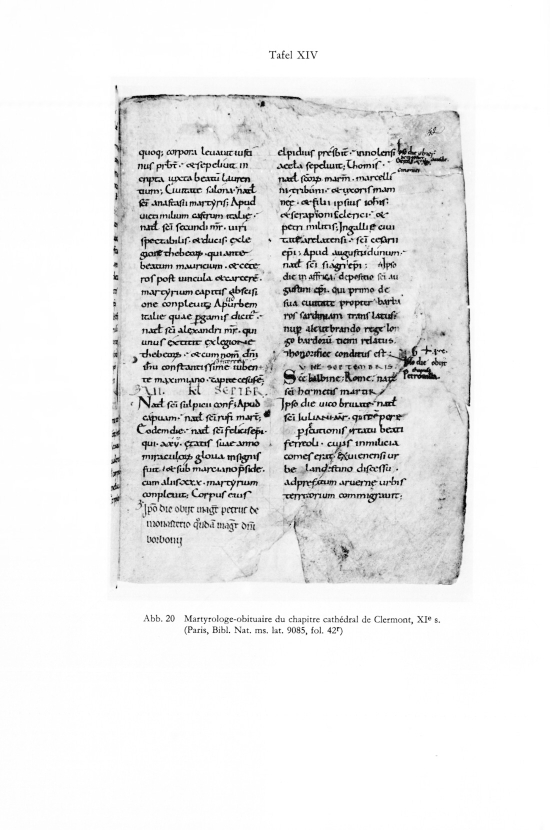 Tafel XIV
quoq; corpora leuauit iusti
nus prbr̄. & sepeliuit in
cripta iuxta beatū lauren
tium; Ciuitate salona. nat̄
sc̄i anastasii martyris; Apud
uicti milium castrum italie.
nat̄ sc̄i secundi mr̄. uiri
spectabilis. & ducis exle
gione thebeoꝝ. qui ante
beatum mauricium. & cete
ros post uincula & carcerē.
martyrium capitis abscisi
one compleuit; Apůd urbem
italie quae pgamis dicit̄.
nat̄ sc̄i alexandri mr̄. qui
unus extitit ex legione
thebeoꝝ. & cum nom̄ dn̄i
ihu constantissime iuben
te maximiano capite cesus ē;
KL SEPTBR.
Nat̄ sc̄i sulpicii conf; Apud
capuam. nat̄ sc̄i rufi mart;
Eodem die. nat̄ sc̄i felicis epi.
qui. xxv. etatis suae anno
miraculoꝝ gloria insignis
fuit. & sub marciano pside.
cum aliis xxx. martyrium
compleuit; Corpus eius
Ipō die obijt magr̄ petrus de
monasterio qn̄dā magr̄ dn̄i
borbonij
elpidius presbit̄. innolensi
acella sepeliuit; Thomis.
nat̄ sc̄oꝝ marm̄. marcelli
ni tribuni. & uxoris mam
nee. & filii ipsius iohis;
& serapionis clerici. &
petri militis; In gallis ciui
tate arelatensi. sc̄i cesarii
ep̄i; Apud augustidunum.
nat̄ sc̄i siagri ep̄i; Ipso
die in affrica; depositio sc̄i au
gustini ep̄i. qui primo de
sua ciuitate propter barba
ros sardiniam translatus;
nup a leutbrando rege lon
gobardoꝝ ticini relatus.
& honorifice conditus est;
V NE SEPTEMBRIS.
Sc̄e balbine; Rome. nat̄
sc̄i hermetis martiris
Ipso die uico briuate. nat̄
sc̄i iuliani mr̄. qui tempore
psecutionis uirtatu beati
ferreoli. cuius in milicia
comes erat. Ex uienensi ur
be clandestino discessu.
ad prefatum aruerne urbis
territorium commigrauit;
Abb. 20 Martyrologe-obituaire du chapitre cathédral de Clermont, XIe s.
(Paris, Bibl. Nat. ms. lat. 9085, fol. 42r)